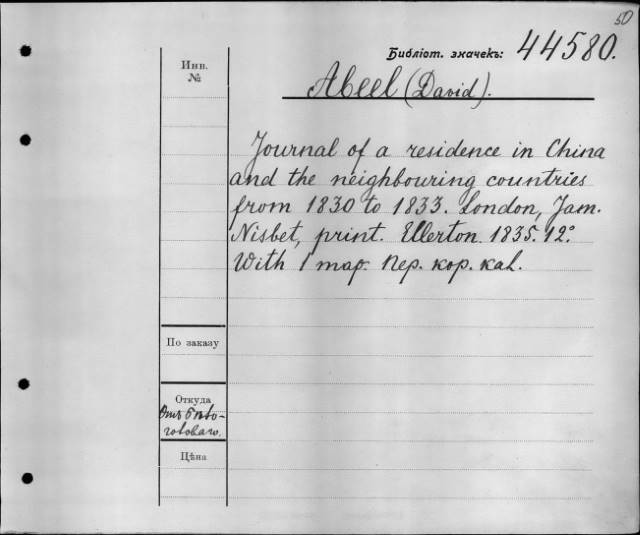 50
Библіот. значекъ: 44580.
Инв.
№
Abeel (David).
Journal of a residence in China
and the neighbouring countries
from 1830 to 1833. London, Jam.
Nisbet, print. Ellerton. 1835. 12°
With 1 map. Пер. кор. каl.
По заказу
Откуда
Цѣна